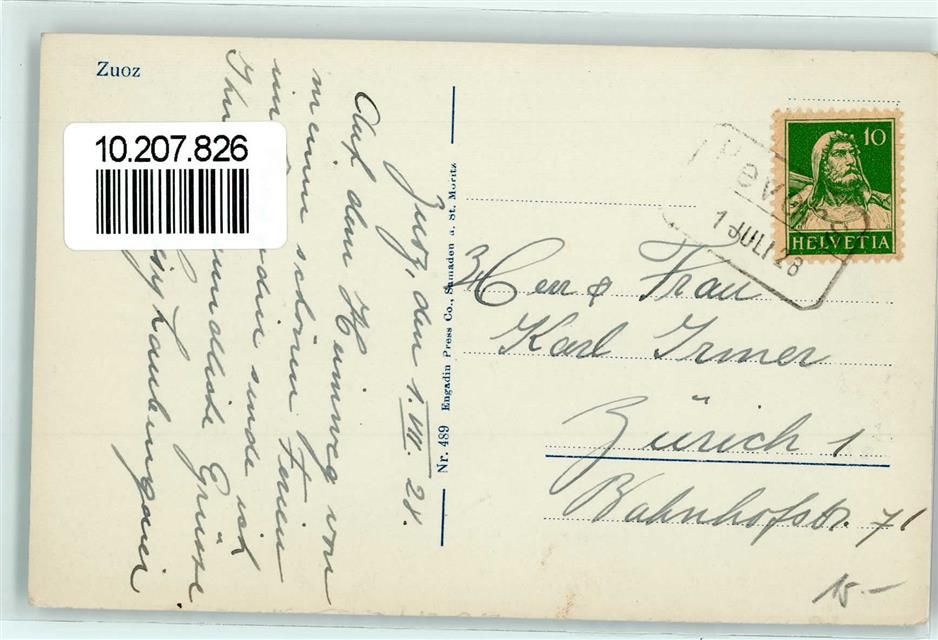 Zuoz
10.207.826
Zuoz, den 1. VII. 28.
Auf dem Heimweg von
meinen schönen Ferien
im Engadin sende ich
Ihnen freundliche Grüsse
Nr. 489 Engadin Press Co., Samaden u. St. Moritz
10
HELVETIA
Bevers
1 JULI 28
Herr & Frau
Karl Irmer
Zürich 1
Bahnhofstr. 71
15.-